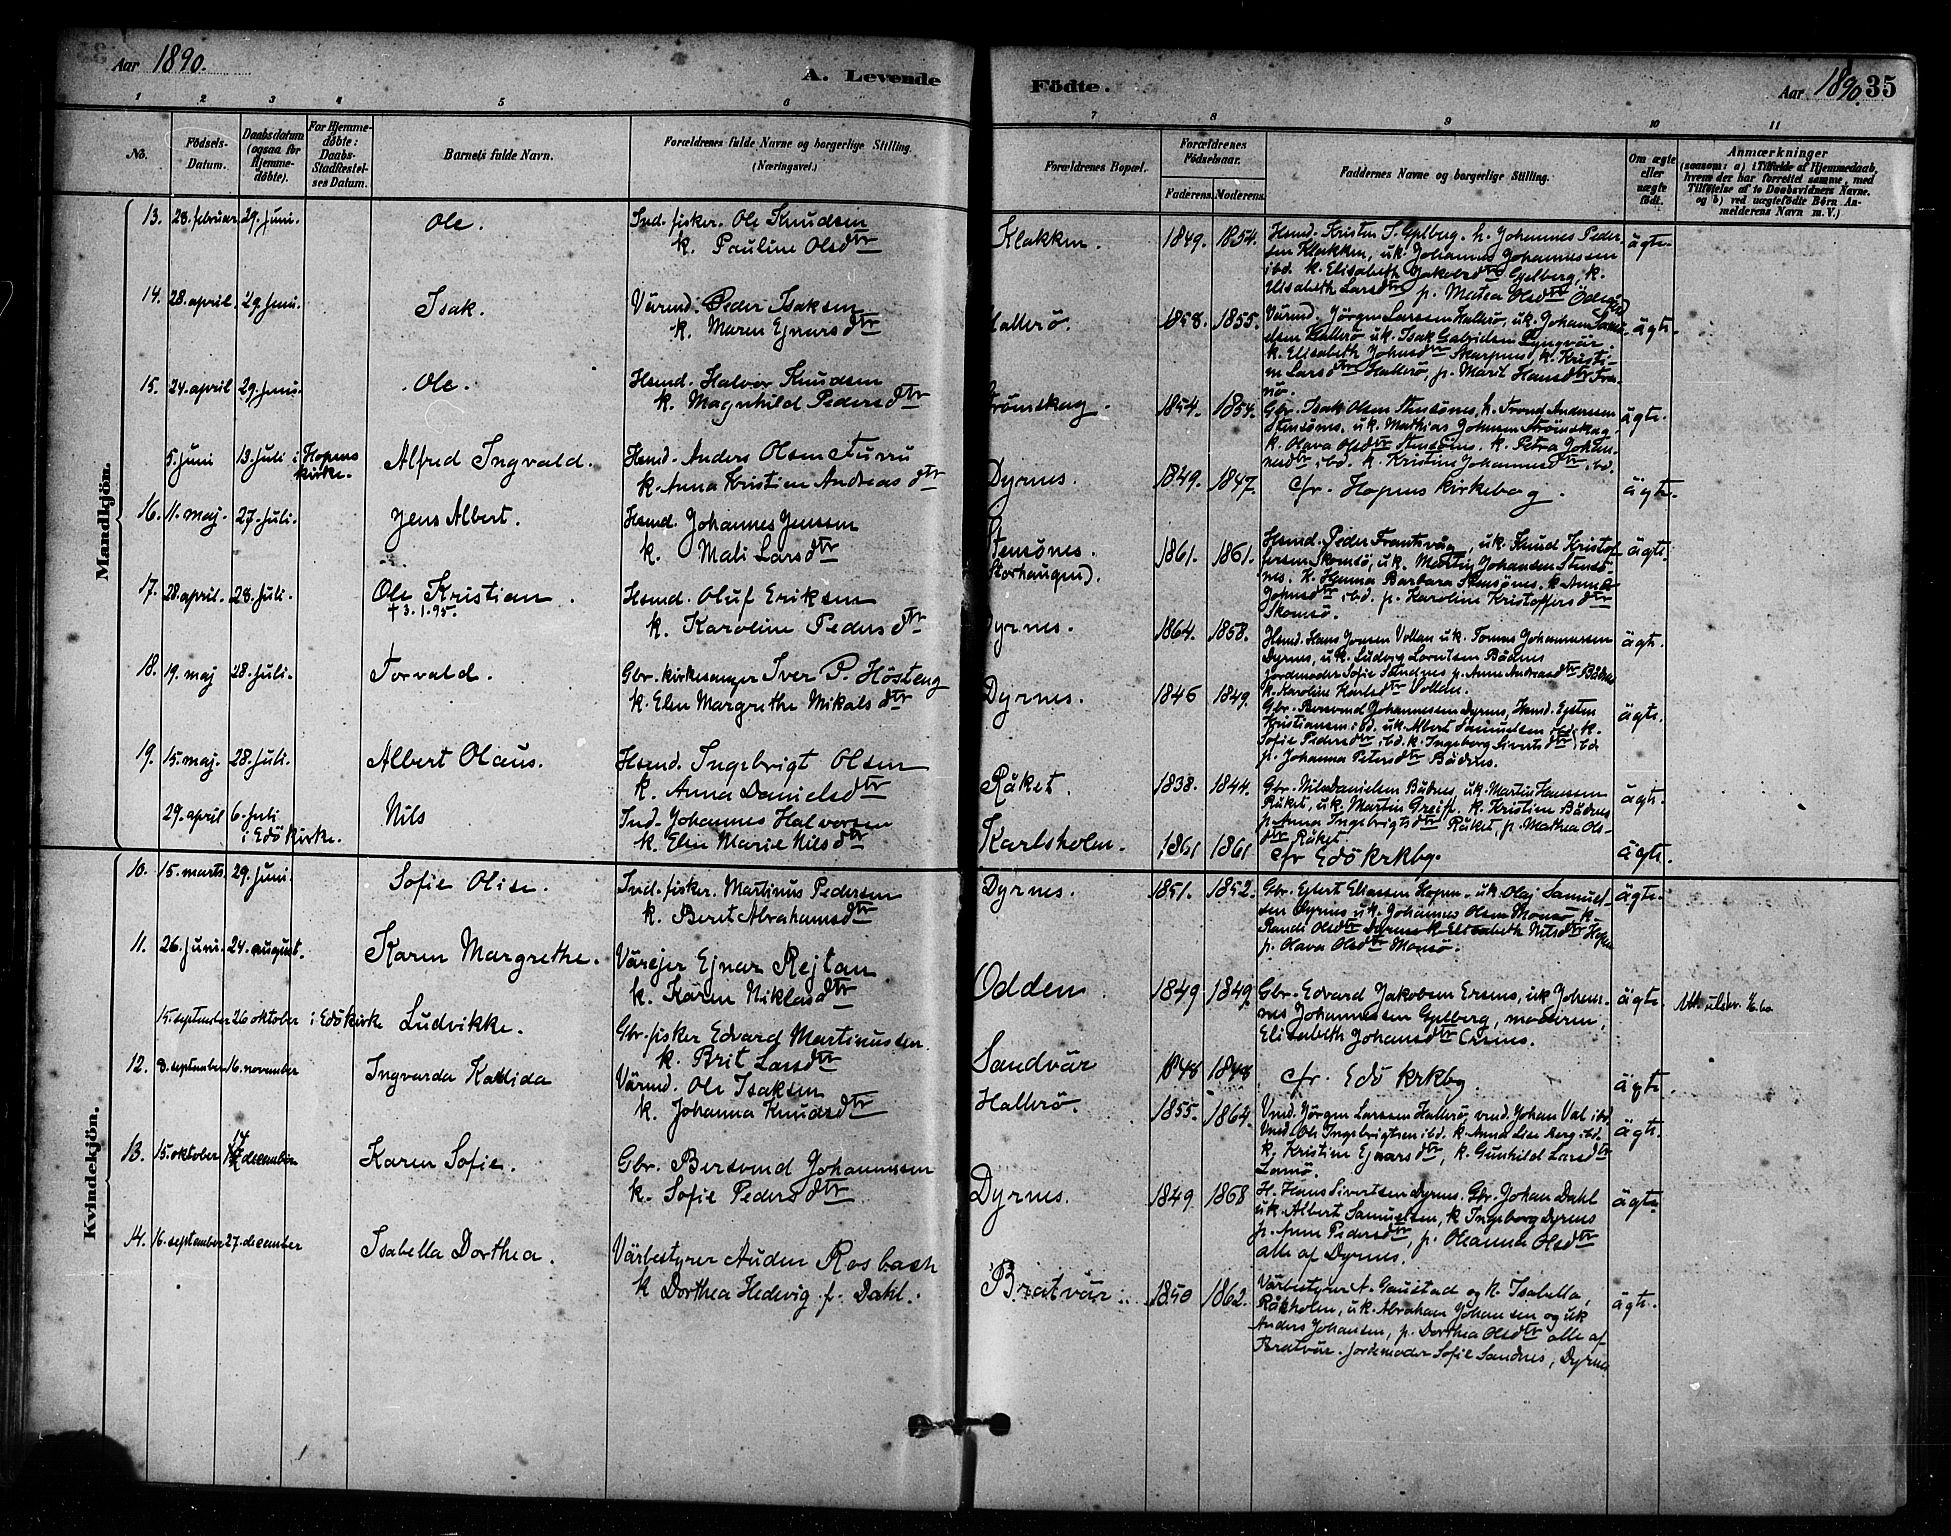 Aar 1890.
A. Levende
Födte.
Aar 1890. 35
1 2 3 4 5 6 7 8 9 10 11
No.
Födsels-Datum.
Daabsdatum (ogsaa for Hjemmedøbte).
For Hjemmedøbte: Daabs-Stadfæstelses Datum.
Barnets fulde Navn.
Forældrenes fulde Navne og borgerlige Stilling. (Næringsvei.)
Forældrenes Bopæl.
Forældrenes Födselsaar.
Faderens. Moderens.
Faddernes Navne og borgerlige Stilling.
Om ægte eller uægte født.
Anmærkninger
(saasom: a) i Tilfælde af Hjemmedaab,
hvem der har forrettet samme, med
Tilføielse af to Daabsvidners Navne.
og b) ved uægtefödte Börn An-
melderens Navn m. V.)
Mandkjön.
13. 28. februar 29. juni. Ole. Ind. fisker. Ole Knudsen
k. Pauline Olsdtr
Klakken. 1849. 1854. Hsmd. Kristen J. Gjelberg. h. Johannes Peder-
sen Klakken, u.k. Johannes Johannessen
ibd. k. Elisabeth Jakobsdtr Gjelberg, k.
Elisabeth Larsdtr p. Matea Olsdtr
ägte.
14. 28. april. 29. juni. Isak. Värmd. Peder Isaksen
k. Maren Ejnarsdtr
Hallerö. 1858. 1855. Värmd. Jörgen Larssen Hallerö, u.k. Johan
Hallerö u.k. Isak Gabrielsen
k. Elisabeth Johnsdtr k. Kristi-
n Larsdtr Hallerö, p. Marit Hansdtr
ägte.
15. 24. april 29. juni. Ole. Hsmd. Halvor Knudsen
k. Magnhild Pedersdtr
Strömskag. 1854. 1854. Gbr. Isak Olsen Stensönes, h. Trond Anderssen
Stensönes. u.k. Mathias Johnsen Strömskag,
k. Olava Olsdtr Stensönes. k. Petra Johan-
nesdtr ibd. k. Kristine Johannesdtr ibd.
ägte.
5. juni 13. juli i Hopens kirke. Alfred Ingvald. Hsmd. Anders Olsen Furru
k. Anna Kristine Andreasdtr
Dyrnes. 1849. 1847. cfr. Hopens kirkebog. ägte.
16. 11. maj. 27. juli. Jens Albert. Hsmd. Johannes Jenssen
k. Mali Larsdtr
Stensönes. Storhaugen). 1861. 1861. Hsmd. Peder u.k. Knud Kristof-
fersen Skomsö, u.k. Martin Johansen Stensö-
nes. k. Hanna Barbara Stensönes. k. Anne
Johnsdtr ibd. p. Karoline Kristoffersdtr
Skomsö.
ägte.
17. 28. april. 28. juli. Ole Kristian.
† 3.1.95.
Hsmd. Oluf Eriksen
k. Karoline Pedersdtr
Dyrnes. 1864. 1858. Hsmd. Hans Jensen Vollan u.k. Tomas Johannessen
Dyrnes, u.k. Ludvig Lorntsen Bådnes
Jordemoder Sofie Sandnes p. Anne Andreasdtr
k. Karoline Karlsdtr Vollan.
ägte.
18. 19. maj 28. juli. Torvald. Gbr. kirkesanger Iver P. Hösteng
k. Elen Margrethe Mikalsdtr
Dyrnes. 1846 1849. Gbr. Bersvend Johannessen Dyrnes, Hsmd. Eysten
Kristiansen ibd. u.k. Albert Samuelsen ibd. k.
Sofie Pedersdtr ibd. k. Ingeborg Sivertsdtr ibd
p. Johanna Petersdtr Bådnes.
ägte.
19. 15. maj. 28. juli. Albert Olaus. Hsmd. Ingebrigt Olsen
k. Anna Danielsdtr
Råket. 1838. 1844. Gbr. Nils Danielsen Bådnes, u.k. Martin Hanssen
Råket, u.k. Martin Greif. k. Kristine Bådnes
p. Anna Ingebrigtsdtr Råket, p. Mathea Ols-
dtr Råket.
ägte.
29. april 6. juli i Edö kirke. Nils Ind. Johannes Halvorsen
k. Elen Marie Nilsdtr
Karlsholm. 1861 1861 cfr Edö krkbg. ägte.
Kvindekjön.
10. 15. marts 29. juni. Sofie Olise. Ind. fisker. Martinus Pedersen
k. Beret Abrahamsdtr
Dyrnes. 1851. 1852. Gbr. Ejlert Eliassen Hopen. u.k. Olaj Samuel-
sen Dyrnes u.k. Johannes Olsen Monsö k.
Randi Olsdtr Dyrnes k. Elisabeth Nilsdtr Hopen
p. Olava Olsdtr Monsö.
ägte.
11. 26. juni. 24. august. Karen Margrethe. Värejer Ejnar Rejtan
k. Karen Niklasdtr
Odden. 1849 1849. Gbr. Edvard Jakobsen Ersnes, u.k. Johan-
nes Johannessen Gjelberg, moderen,
Elisabeth Johansdtr Ersnes.
ägte.
15. september 26 oktober i Edökirke Ludvikke. Gbr. fisker Edvard Martinussen.
k. Brit Larsdtr
Sandvär 1848 1848 cfr. Edö krkbg. ägte
12. 8. september 16. november Ingvarda Kallida Värmd. Ole Isaksen
k. Johanna Knudsdtr
Hallerö. 1855. 1864. Vmd. Jörgen Larssen Hallerö, vmd. Johan Val ibd.
Vmd. Ole Ingebrigtsen ibd. k. Anna Lise Berg ibd.
k. Kristine Ejnarsdtr, k. Gunhild Larsdtr
ägte.
13. 15. oktober 14 december Karen Sofie. Gbr. Bersvend Johannessen
k. Sofie Pedersdtr
Dyrnes. 1849 1868 H. Hans Sivertsen Dyrnes. Gbr. Johan Dahl
u.k. Albert Samuelsen, k Ingeborg Dyrnes
p. Anne Pedersdtr, p. Oleanna Olsdtr
alle af Dyrnes.
ägte
14. 16. september 27. december Isabella Dorthea. Värbestyrer Auden Rosbach
k Dorthea Hedevig f. Dahl.
Bratvär 1850 1862. Värbestyrer A. Gaustad og k. Isabella,
Råkholm, u.k. Abraham Johansen og u.k
Anders Johansen, p. Dorthea Olsdtr alle af
Bratvär. Jordemoder Sofie Sandnes, Dyrnes
ägte.